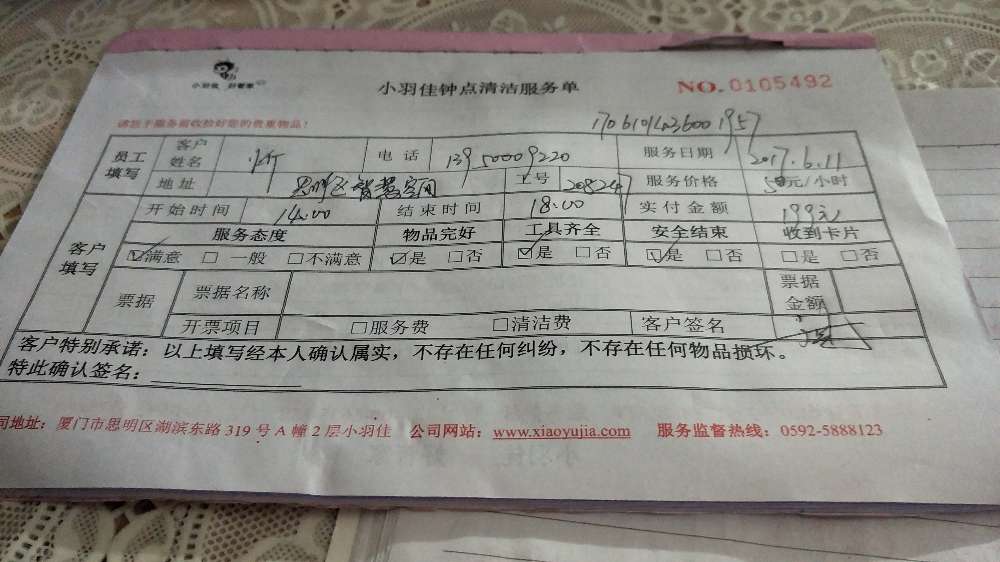 小羽佳 好管家
小羽佳钟点清洁服务单 NO.0105492
请您于服务前收拾好您的贵重物品!
员工填写 客户姓名 电话 13950009220 服务日期 2017.6.11
地址 思明区智慧空间 工号 208247 服务价格 50元/小时
开始时间 14:00 结束时间 18:00 实付金额 199元
客户填写 服务态度 物品完好 工具齐全 安全结束 收到卡片
☑满意 □一般 □不满意 ☑是 □否 ☑是 □否 ☑是 □否 □是 □否
票据 票据名称 票据金额
开票项目 □服务费 □清洁费 客户签名
客户特别承诺:以上填写经本人确认属实,不存在任何纠纷,不存在任何物品损坏。
特此确认签名:
司地址:厦门市思明区湖滨东路 319 号 A 幢 2 层小羽佳 公司网站:www.xiaoyujia.com 服务监督热线:0592-5888123